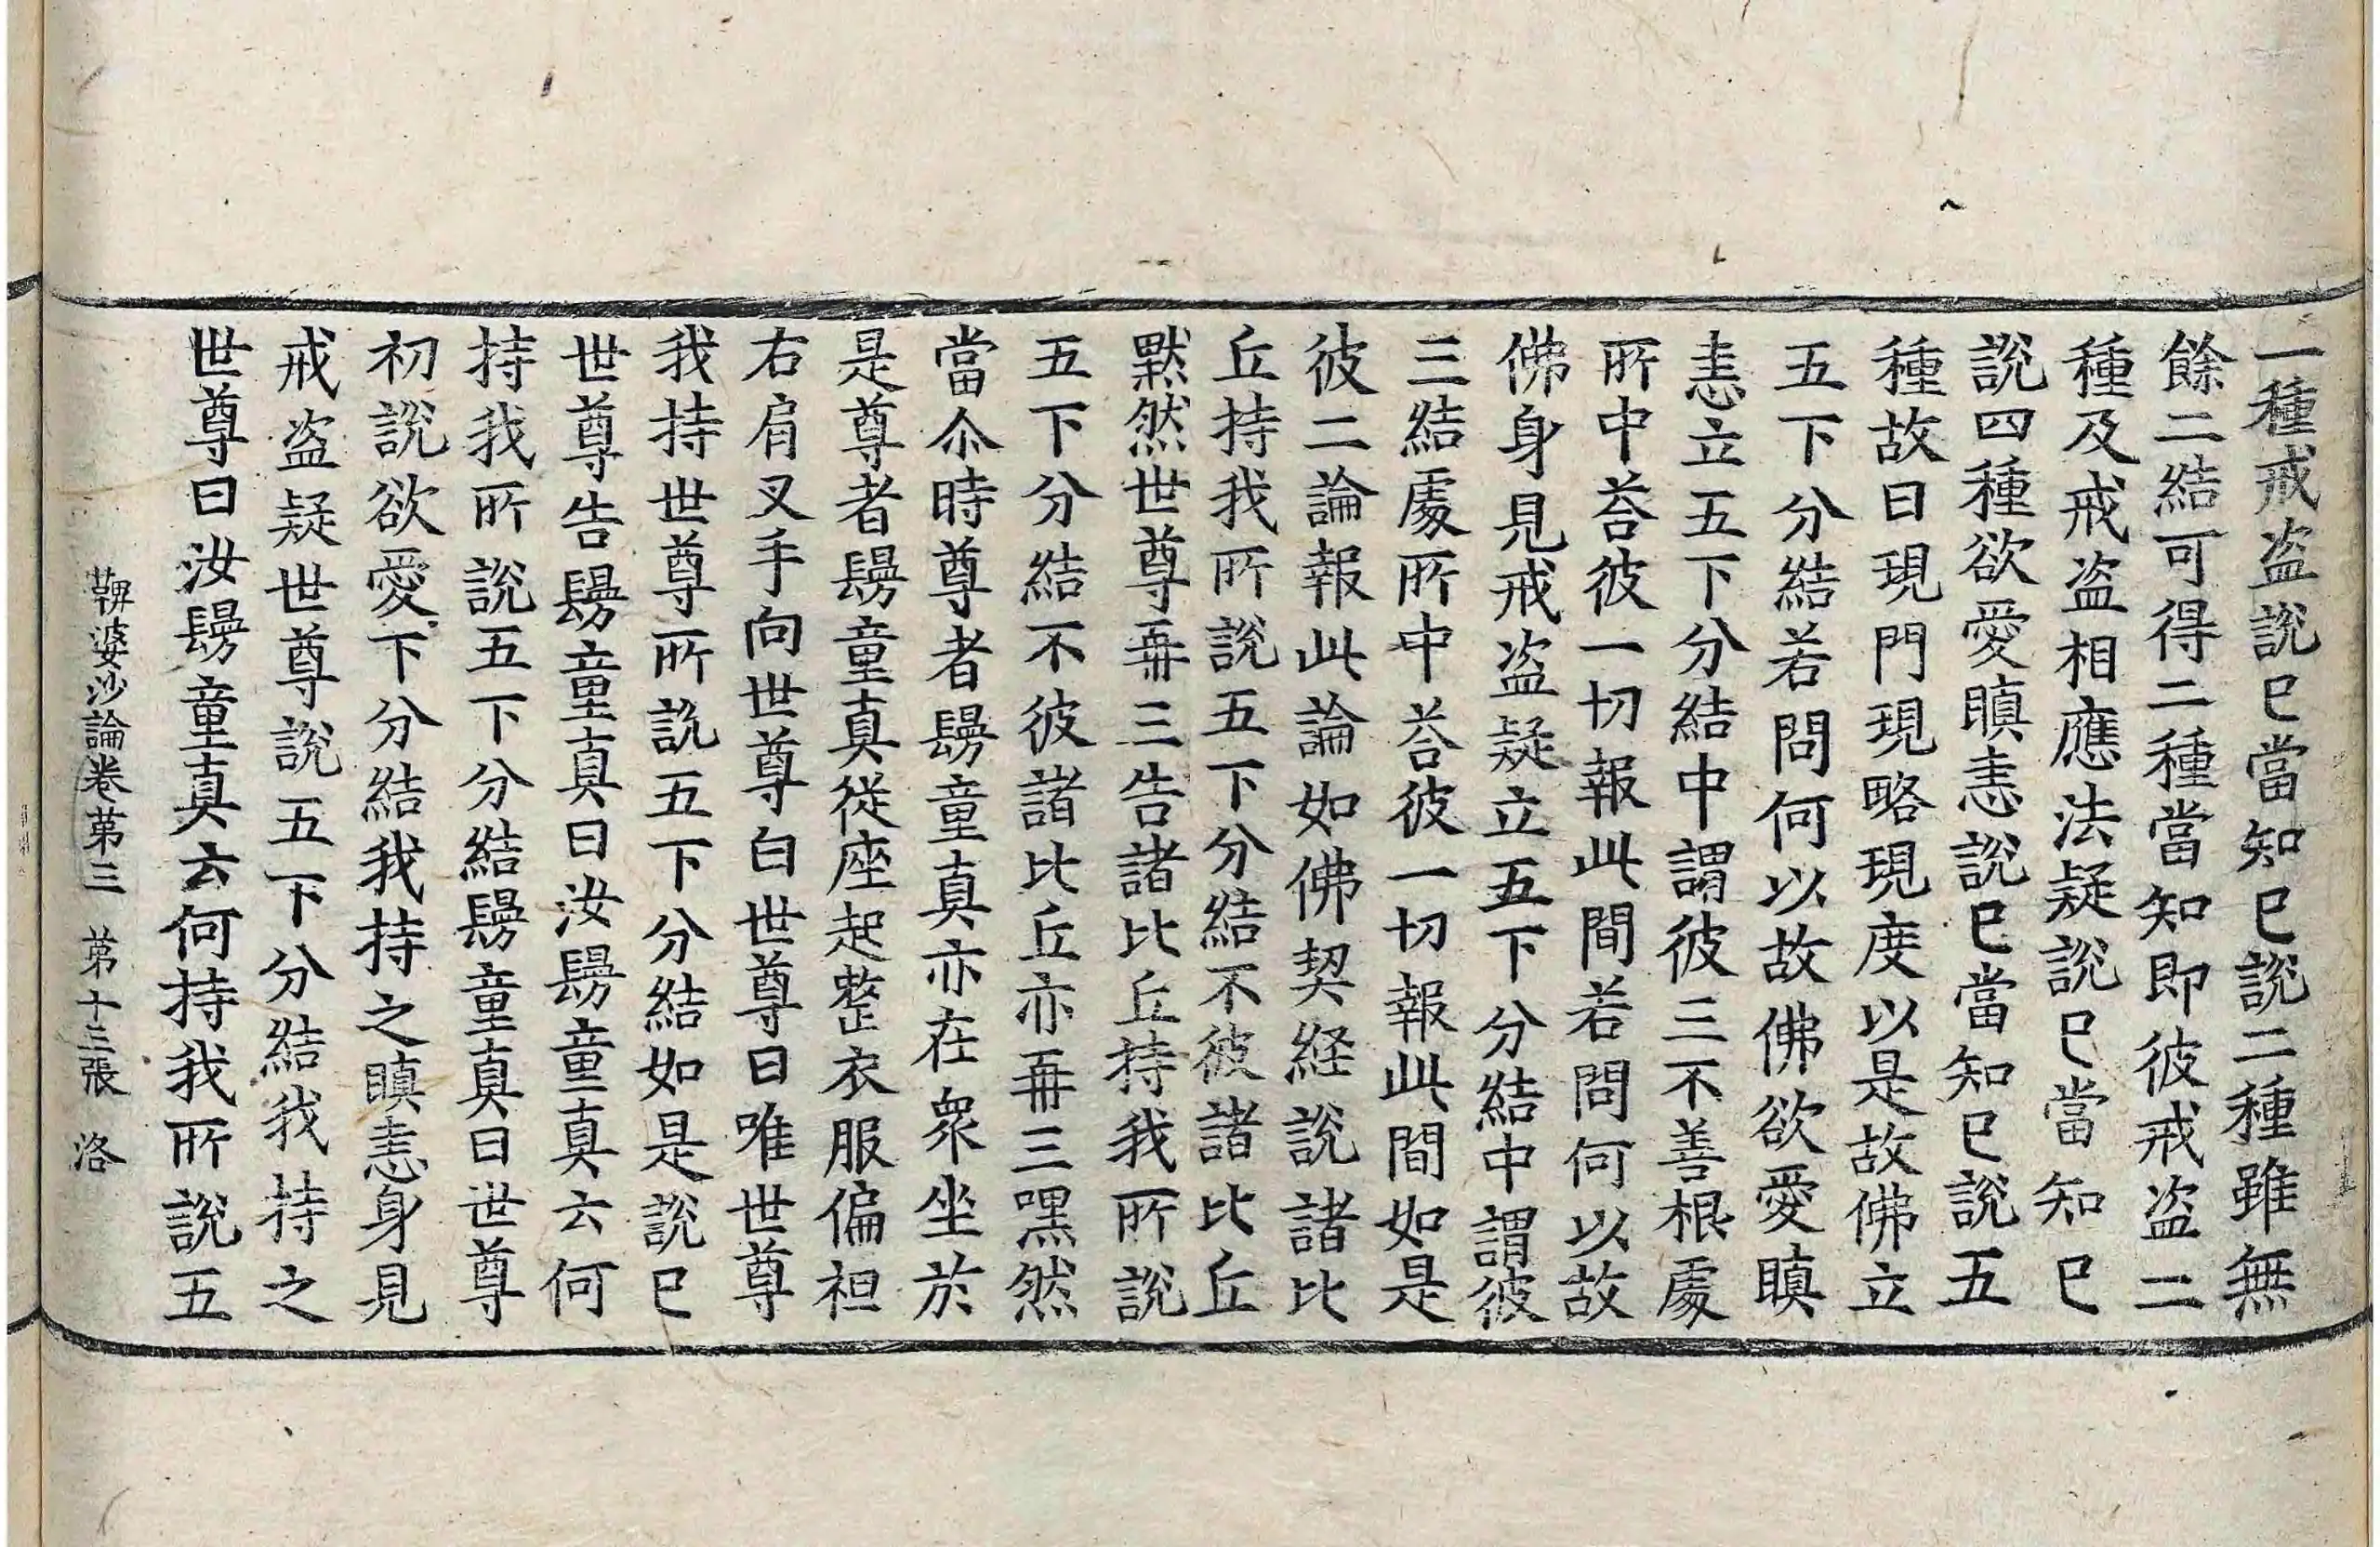 一種戒盗說已當知已說二種雖無
餘二結可得二種當知即彼戒盗二
種及戒盗相應法疑說已當知已
說四種欲愛瞋恚說已當知已說五
種故曰現門現略現度以是故佛立
五下分結若問何以故佛欲愛瞋
恚立五下分結中謂彼三不善根處
所中荅彼一切報此間若問何以故
佛身見戒盗疑立五下分結中謂彼
三結處所中荅彼一切報此間如是
彼二論報此論如佛契経說諸比
丘持我所說五下分結不彼諸比丘
黙然世尊再三告諸比丘持我所說
五下分結不彼諸比丘亦再三嘿然
當尒時尊者鬘童真亦在衆坐於
是尊者鬘童真從座起整衣服偏袒
右肩叉手向世尊白世尊曰唯世尊
我持世尊所說五下分結如是說已
世尊告鬘童真曰汝鬘童真云何
持我所說五下分結鬘童真曰世尊
初說欲愛下分結我持之瞋恚身見
戒盗疑世尊說五下分結我持之
世尊曰汝鬘童真云何持我所說五
鞞婆沙論卷第三 第十三張 洛